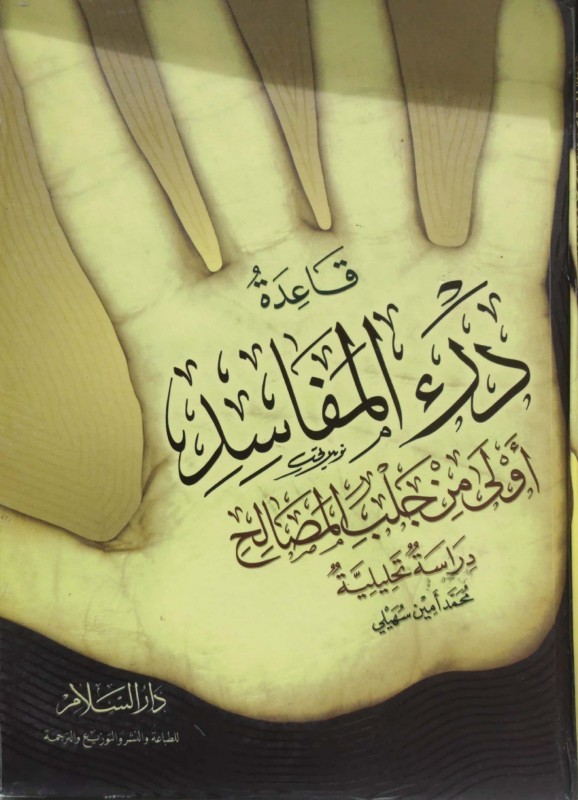 قَاعِدَةُ
دَرْءِ المَفَاسِدِ
أَوْلَى مِنْ جَلْبِ المَصَالِحِ
دِرَاسَةٌ تَحْلِيلِيَّةٌ
مُحَمَّد أَمِين سُهَيْلِي
دَارُ السَّلَامِ
للطباعة والنشر والتوزيع والترجمة